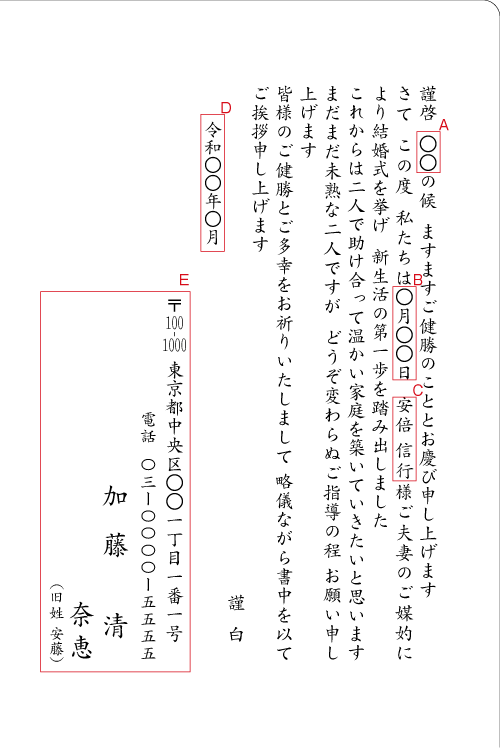 謹啓 〇〇の候 ますますご健勝のこととお慶び申し上げます
さて この度 私たちは〇月〇〇日 安倍 信行様ご夫妻のご媒妁に
より結婚式を挙げ 新生活の第一歩を踏み出しました
これからは二人で助け合って温かい家庭を築いていきたいと思います
まだまだ未熟な二人ですが どうぞ変わらぬご指導の程 お願い申し
上げます
皆様のご健勝とご多幸をお祈りいたしまして 略儀ながら書中を以て
ご挨拶申し上げます
謹白
令和〇〇年〇月
〒100-1000 東京都中央区〇〇一丁目一番一号
電話 〇三ー〇〇〇〇ー五五五五
加藤 清
奈恵
(旧姓 安藤)
A
B
C
D
E